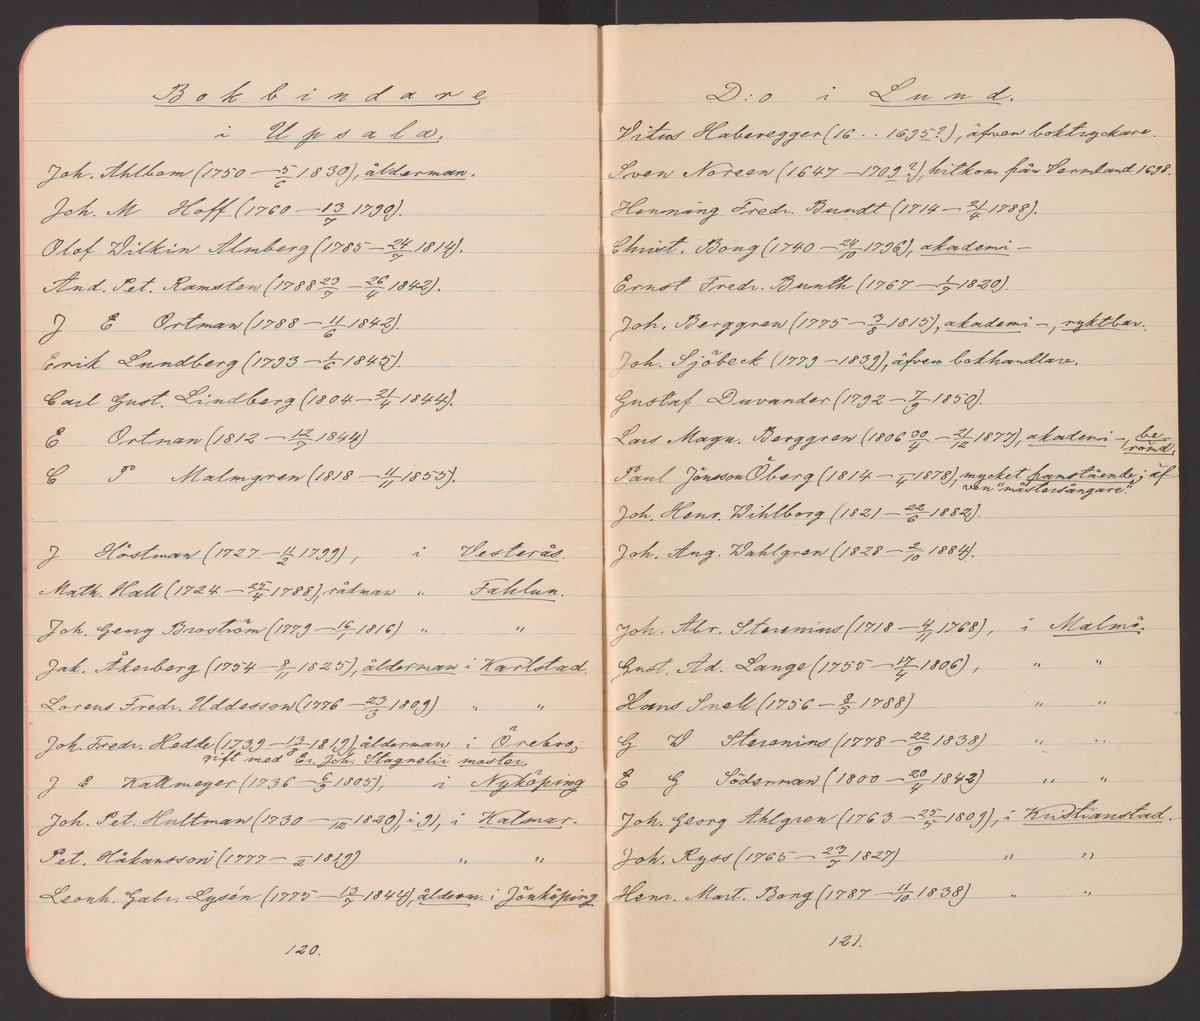 Bokbindare
i Upsala.
Joh. Ahlbom (1750 — 5/6 1830), ålderman.
Joh. M Hoff (1760 — 13/7 1790).
Olof Wilkin Almberg (1785 — 24/7 1814).
And. Pet. Ramsten (1788 23/7 — 26/4 1842).
J E Ortman (1788 — 11/6 1842).
Erik Lundberg (1793 — 1/6 1845).
Carl Gust. Lindberg (1804 — 21/4 1844).
E Ortman (1812 — 12/7 1844)
C P Malmgren (1818 — 11/11 1855).
J Höstman (1727 — 11/2 1799), i Vesterås.
Math. Hall (1724 — 25/4 1788), rådman " Fahlun.
Joh. Georg Broström (1779 — 16/1 1816) " "
Jak. Åkerberg (1754 — 8/11 1825), ålderman i Karlstad.
Lorens Fredr. Uddesson (1776 — 23/3 1809) " "
Joh. Fredr. Hedde (1739 — 13/8 1819), ålderman i Örebro;
gift med Er. Joh. Stagnelii moster.
J E Kallmeyer (1736 — 6/9 1805), i Nyköping
Joh. Pet. Hultman (1730 — /12 1820), i 91, i Kalmar.
Pet. Håkansson (1777 — /2 1819) " "
Leonh. Gabr. Lysén (1775 — 13/7 1844), ålderm. i Jönköping.
120.
D:o i Lund.
Vitus Haberegger (16 . . 1695?), äfven boktryckare.
Sven Noreen (1647 — 1709?), hitkom från Vermland 1698.
Henning Fredr. Bundt (1714 — 21/4 1788).
Christ. Bong (1740 — 24/10 1796), akademi —
Ernst Fredr. Bunth (1767 — 1/7 1820).
Joh. Berggren (1775 — 3/8 1815), akademi —, ryktbar.
Joh. Sjöbeck (1779 — 1839), äfven bokhandlare.
Gustaf Duvander (1792 — 7/9 1850).
Lars Magn. Berggren (1806 30/4 — 21/12 1877), akademi —, be
römd;
Paul Jönsson Öberg (1814 — /4 1878), mycket framstående; äf
ven "mästersångare".
Joh. Henr. Wihlborg (1821 — 22/6 1882).
Joh. Aug. Wahlgren (1828 — 2/10 1884).
Joh. Abr. Sterenius (1718 — 4/11 1768), i Malmö.
Gust. Ad. Lange (1755 — 17/4 1806), " "
Hans Snell (1756 — 8/5 1788) " "
G W Sterenius (1778 — 22/9 1838) " "
E G Söderman (1800 — 20/4 1842) " "
Joh. Georg Ahlgren (1763 — 25/5 1809), i Kristianstad.
Joh. Ryss (1765 — 23/7 1827) " "
Henr. Mart. Bong (1787 — 11/10 1838) " "
121.